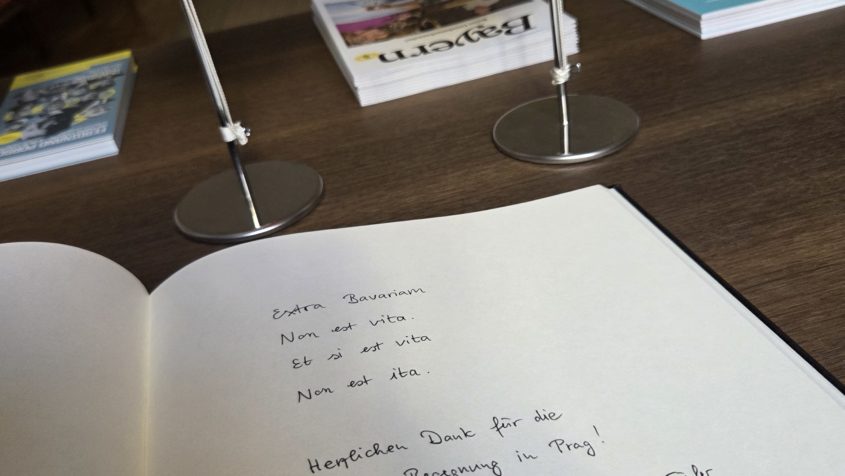 Bayern
Extra Bavariam
Non est vita.
Et si est vita
Non est ita.
Herzlichen Dank für die
Begegnung in Prag!